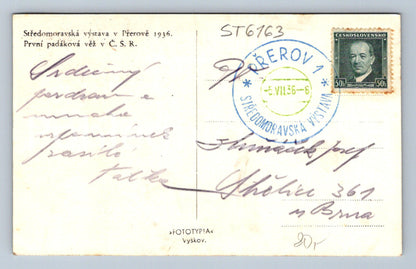 Středomoravská výstava v Přerově 1936.
První padáková věž v Č. S. R.
ST6163
PŘEROV 1
-6.VII.36-6
STŘEDOMORAVSKÁ VÝSTAVA
ČESKOSLOVENSKO
50h 50h
Srdečný
pozdrav a
mnoho
vzpomínek
zasílá
Josef
Střelice 361
u Brna
»FOTOTYPIA«
Vyškov.
20,-